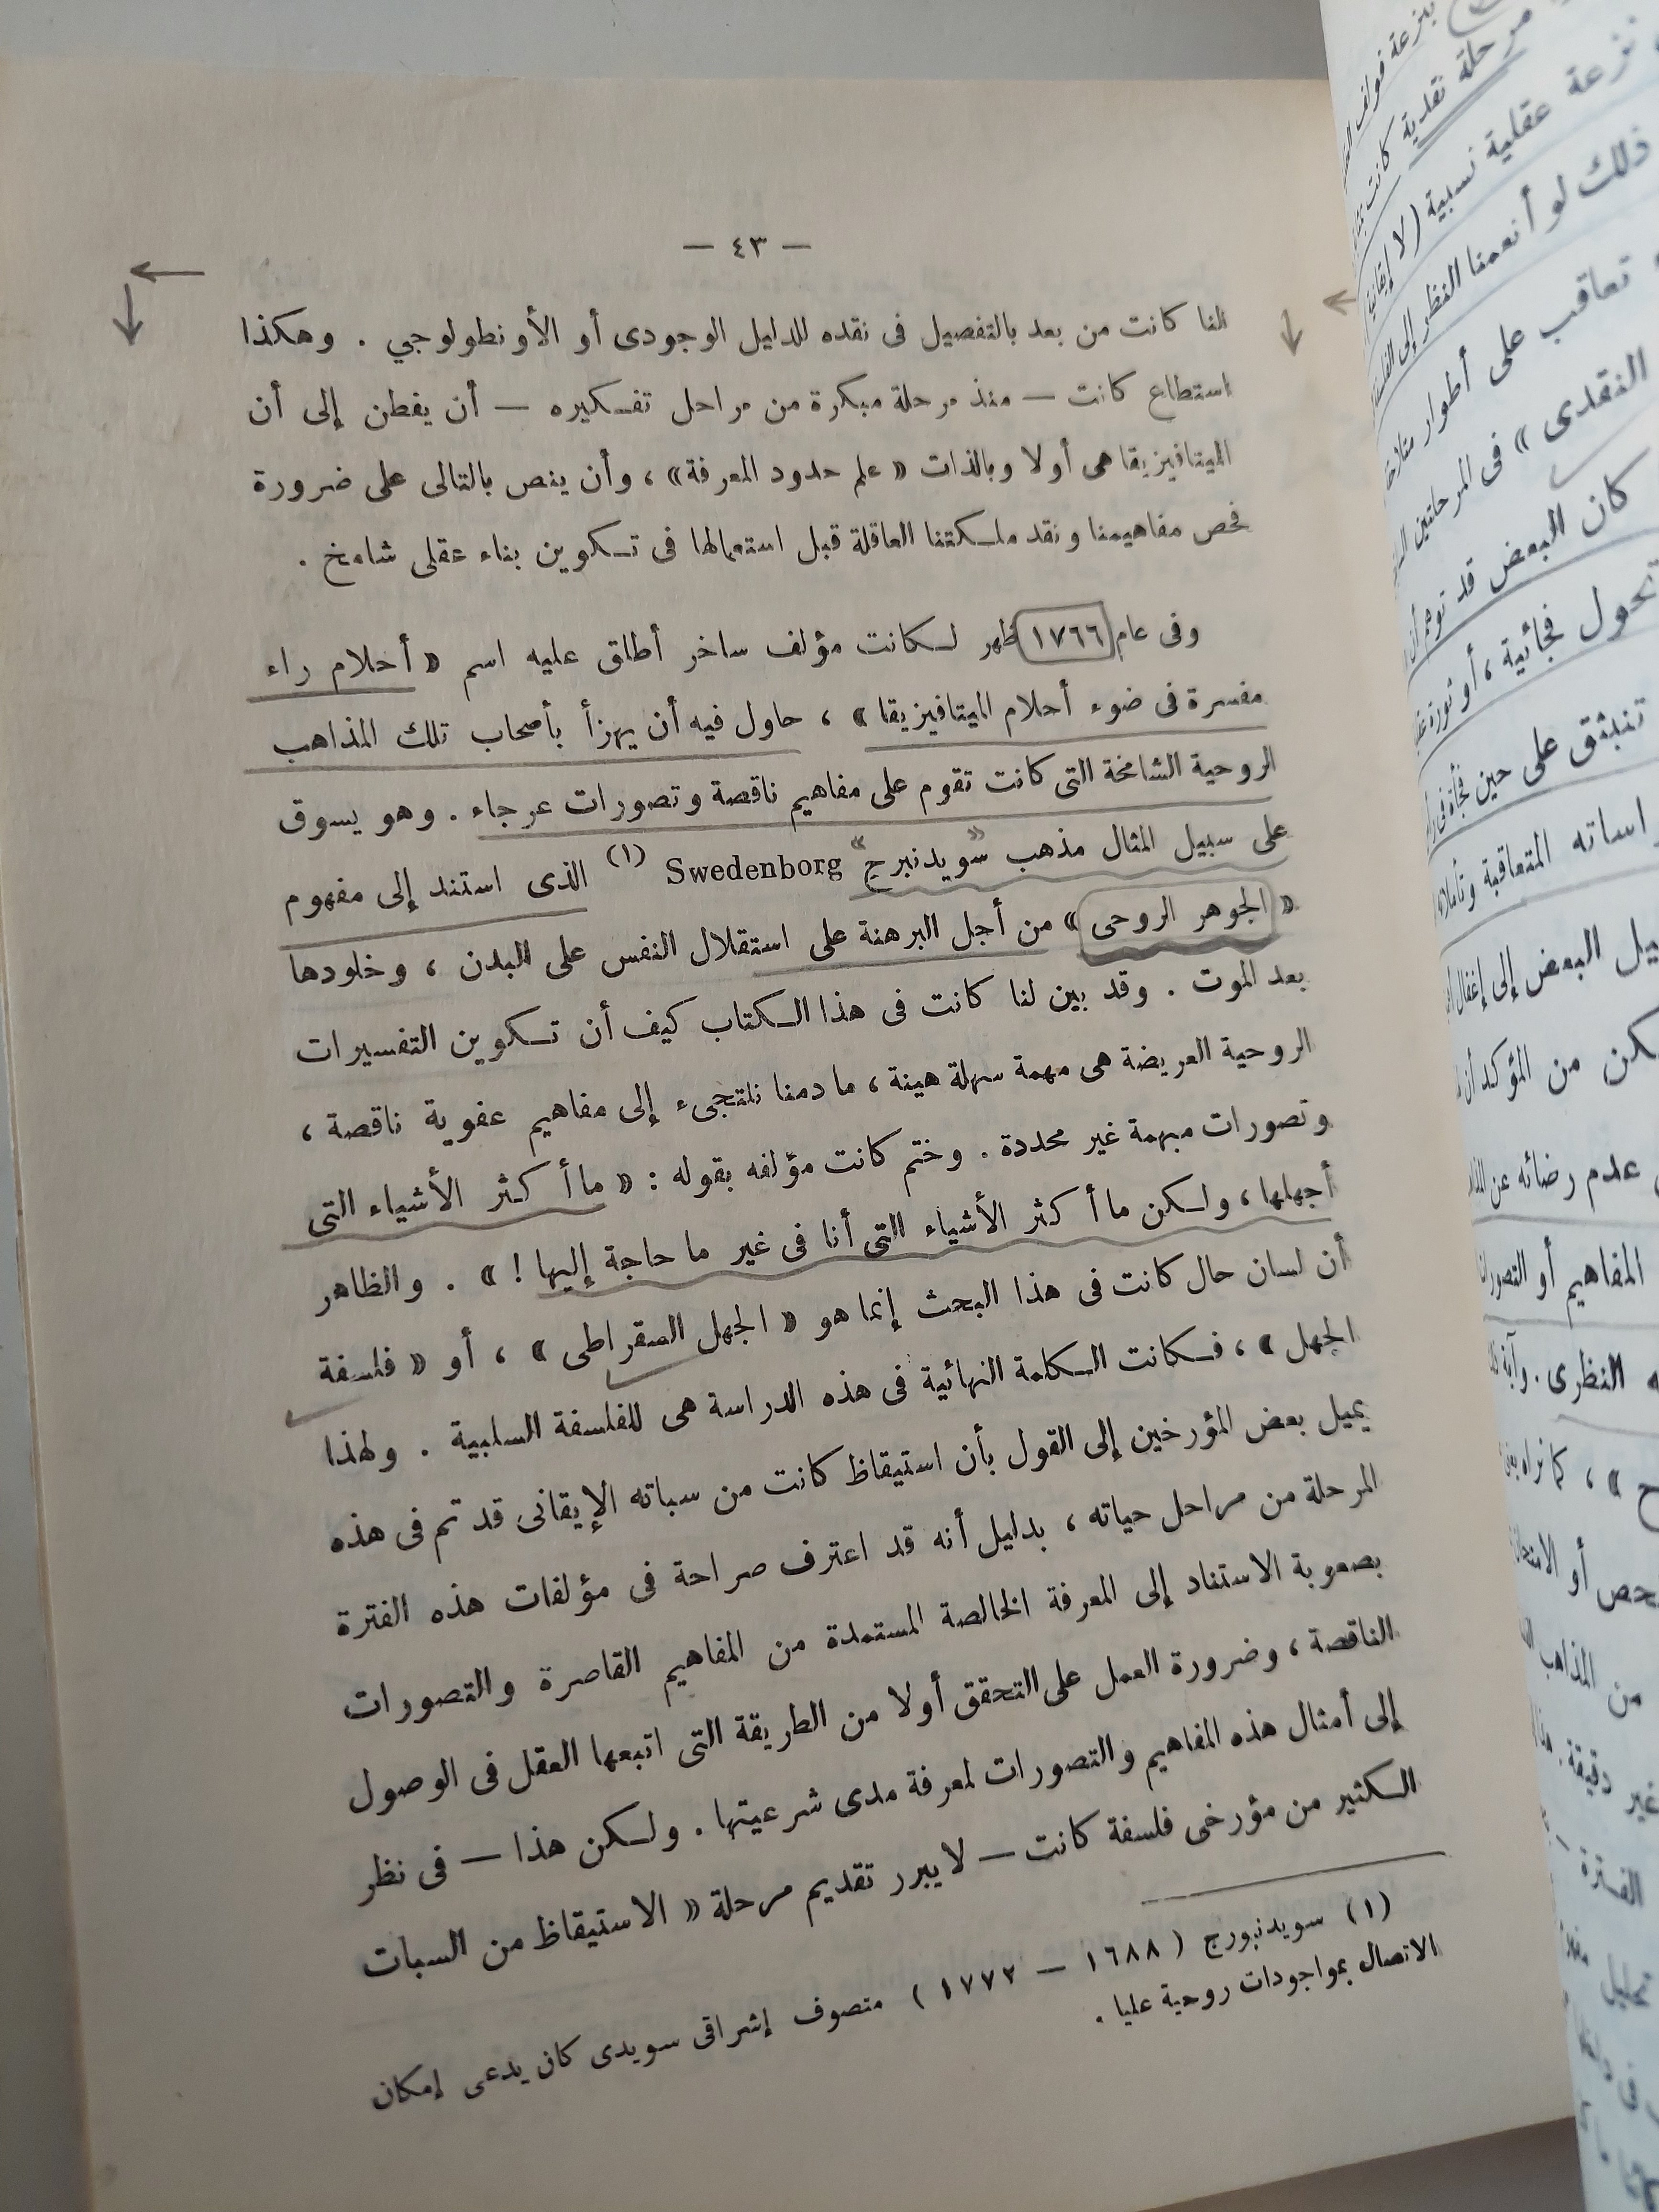 — ٤٣ —
لنا كانت من بعد بالتفصيل فى نقده للدليل الوجودى أو الأونطولوجي . وهكذا
استطاع كانت — منذ مرحلة مبكرة من مراحل تفكيره — أن يفطن إلى أن
الميتافيزيقا هى أولا وبالذات « علم حدود المعرفة» ، وأن ينص بالتالى على ضرورة
فحص مفاهيمنا ونقد ملكتنا العاقلة قبل استعمالها فى تكوين بناء عقلى شامخ .
وفى عام ١٧٦٦ ظهر لكانت مؤلف ساخر أطلق عليه اسم « أحلام راء
مفسرة فى ضوء أحلام الميتافيزيقا » ، حاول فيه أن يهزأ بأصحاب تلك المذاهب
الروحية الشامخة التى كانت تقوم على مفاهيم ناقصة وتصورات عرجاء . وهو يسوق
على سبيل المثال مذهب "سويدنبرج" Swedenborg (١) الذى استند إلى مفهوم
« الجوهر الروحى » من أجل البرهنة على استقلال النفس على البدن ، وخلودها
بعد الموت . وقد بين لنا كانت فى هذا الكتاب كيف أن تكوين التفسيرات
الروحية العريضة هى مهمة سهلة هينة ، ما دمنا نلتجىء إلى مفاهيم عفوية ناقصة ،
وتصورات مبهمة غير محددة . وختم كانت مؤلفه بقوله : « ما أكثر الأشياء التى
أجهلها ، ولكن ما أكثر الأشياء التى أنا فى غير ما حاجة إليها ! » . والظاهر
أن لسان حال كانت فى هذا البحث إنما هو « الجهل السقراطى » ، أو « فلسفة
الجهل » ، فكانت الكلمة النهائية فى هذه الدراسة هى للفلسفة السلبية . ولهذا
يميل بعض المؤرخين إلى القول بأن استيقاظ كانت من سباته الإيقانى قد تم فى هذه
المرحلة من مراحل حياته ، بدليل أنه قد اعترف صراحة فى مؤلفات هذه الفترة
بصعوبة الاستناد إلى المعرفة الخالصة المستمدة من المفاهيم القاصرة والتصورات
الناقصة ، وضرورة العمل على التحقق أولا من الطريقة التى اتبعها العقل فى الوصول
إلى أمثال هذه المفاهيم والتصورات لمعرفة مدى شرعيتها . ولكن هذا — فى نظر
الكثير من مؤرخى فلسفة كانت — لا يبرر تقديم مرحلة « الاستيقاظ من السبات
(١) سويدنبورج ( ١٦٨٨ — ١٧٧٢ ) متصوف إشراقى سويدى كان يدعى إمكان
الاتصال بمواجودات روحية عليا .
مرحلة نقدية كانت
نزعة عقلية نسبية ( لا إيقانية
ذلك لو أنعمنا النظر إلى
تعاقب على أطوار
النقدى » فى المرحلتين
كان البعض قد توهم أن
تحول فجائية ، أو ثورة
تنبثق على حين فجأة فى
المتعاقبة
يميل البعض إلى إغفال
من المؤكد أن
عدم رضائه عن
المفاهيم أو
النظرى .
» ، كما نراه
أو
من المذاهب
غير دقيقة .
الفترة